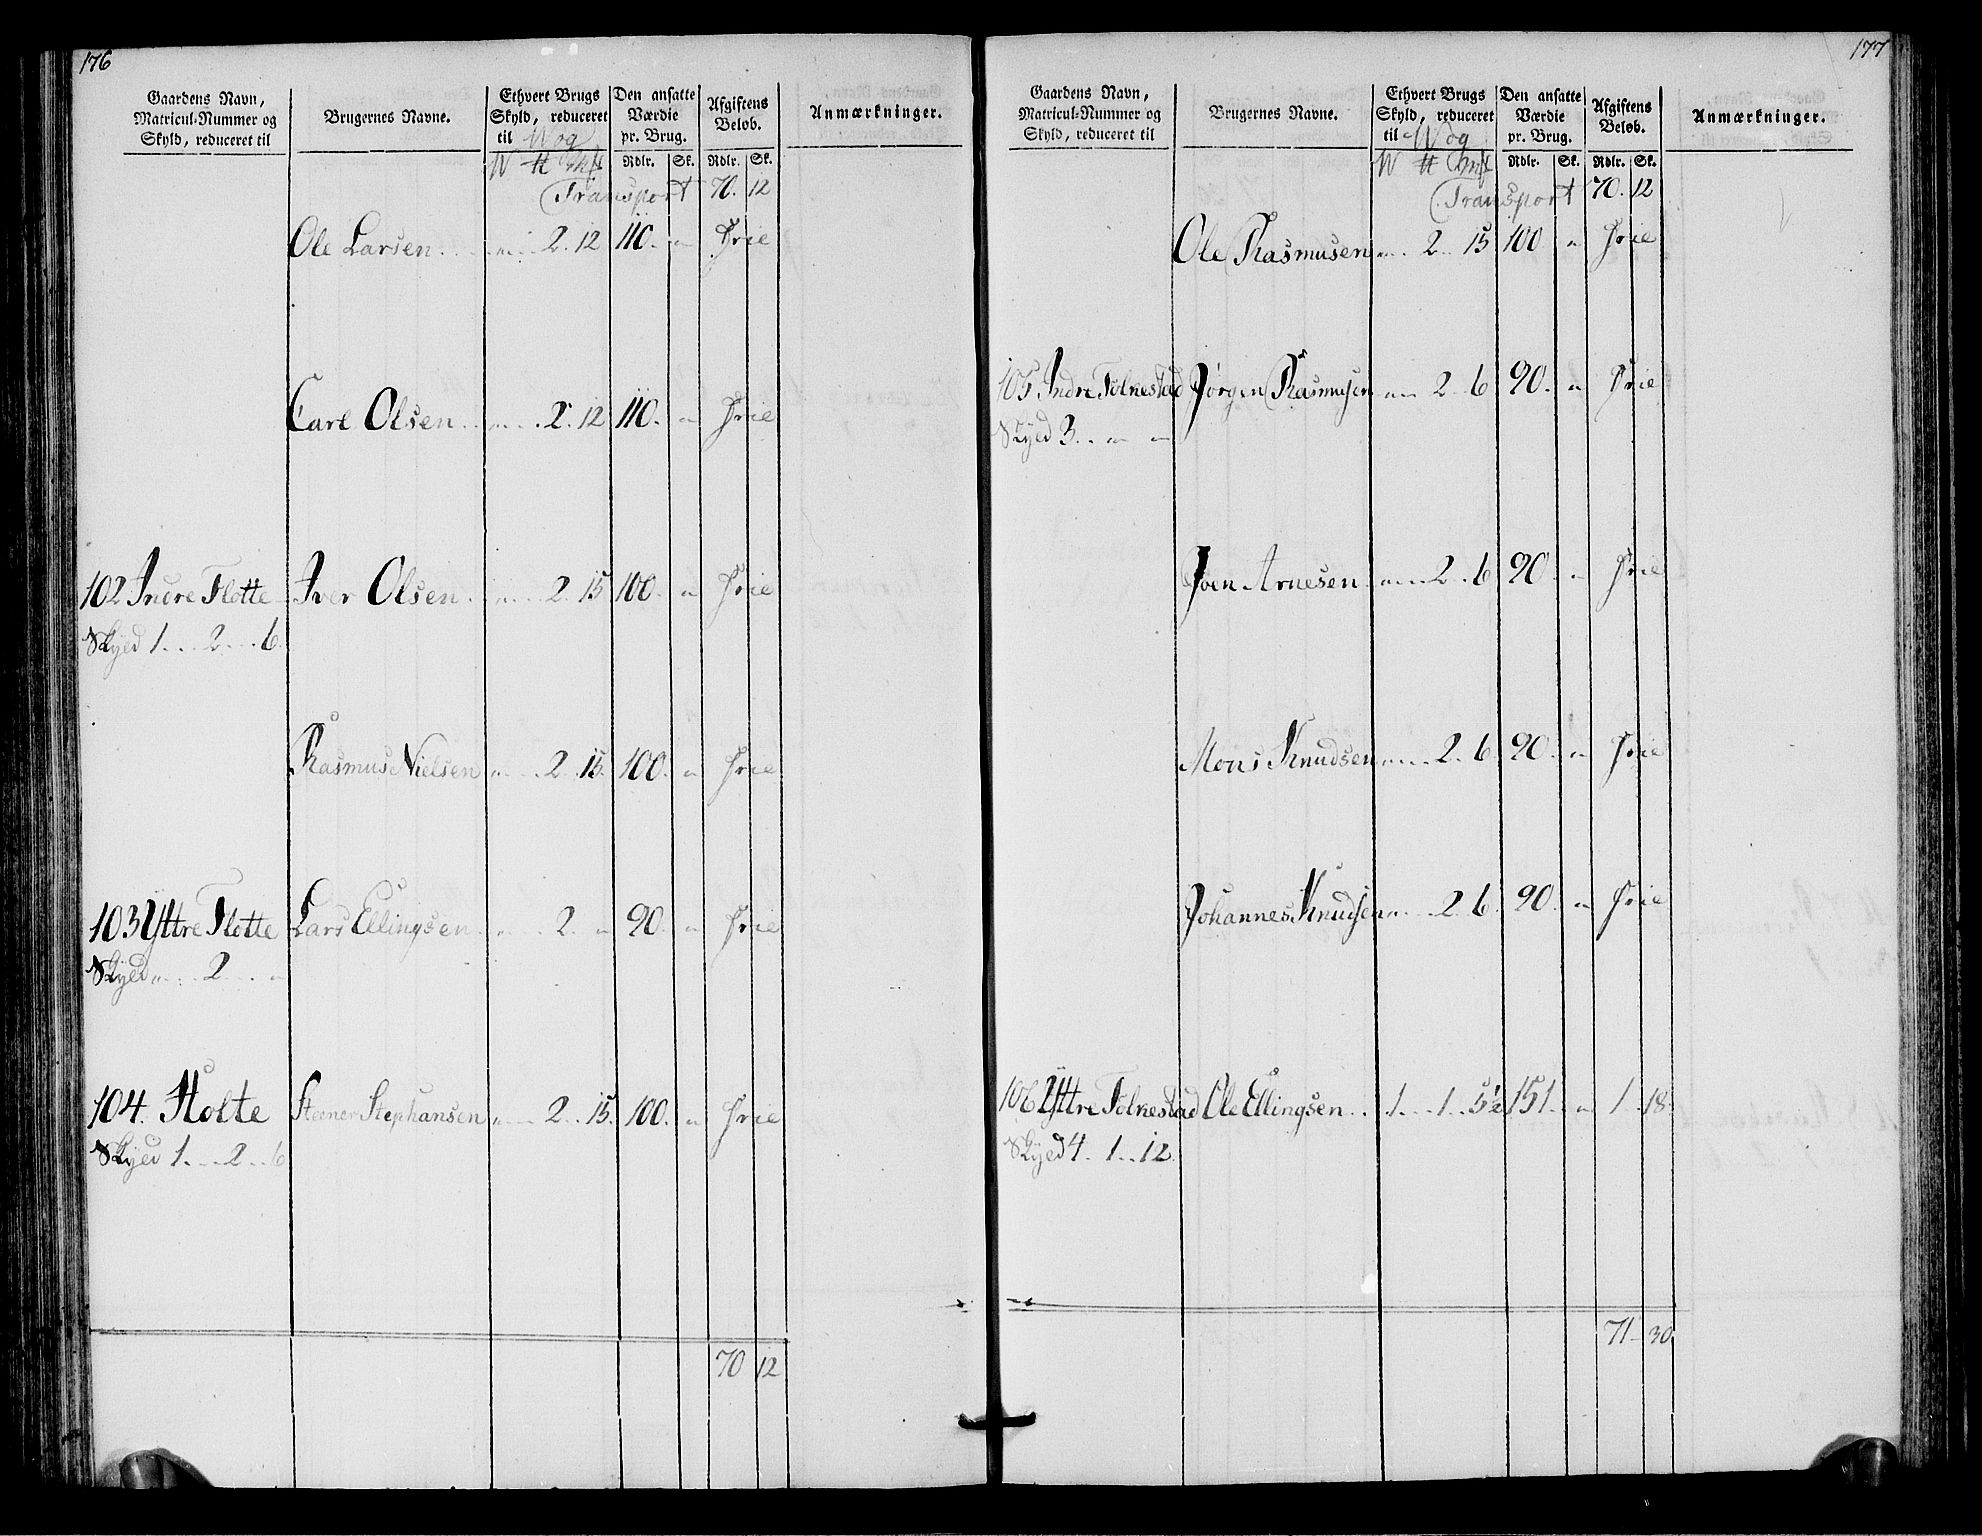 176
Gaardens Navn, Matricul-Nummer og Skyld, reduceret til
Brugernes Navne.
Ethvert Brugs Skyld, reduceret til Wog
W # Mk
Den ansatte Værdie pr. Brug.
Rdlr. Sk.
Afgiftens Beløb.
Rdlr. Sk.
Anmærkninger.
Transport 70. 12
Ole Larsen . . . „ . . 2. 12 110. „ Frie
Carl Olsen . . „ . . 2. 12 110. „ Frie
102 Indre Flotte Iver Olsen . . „ . . 2. 15 100. „ Frie
Skyld 1 . . . 2 . . . 6.
Rasmus Nielsen „ . . . 2. 15. 100. „ Frie
103 Yttre Flotte Lars Ellingsen . „ . . . 2. „ 90. „ Frie
Skyld „ . . . 2 . . . „
104. Holte Steener Stephansen „ . . . 2 . . 15. 100. „ Frie
Skyld 1 . . . 2 . . 6
70 12
177
Gaardens Navn, Matricul-Nummer og Skyld, reduceret til
Brugernes Navne.
Ethvert Brugs Skyld, reduceret til Wog
W # Mk
Den ansatte Værdie pr. Brug.
Rdlr. Sk.
Afgiftens Beløb.
Rdlr. Sk.
Anmærkninger.
Transport 70. 12
Ole Rasmusen „ . . 2. 15 100 „ Frie
105 Indre Folkestad Jørgen Rasmusen „ . . 2. 6 90. „ Frie
Skyld 3. . „ „
Joen Arnesen . „ . . . 2. . 6 90. „ Frie
Mons Knudsen „ . . . 2. 6. 90. „ Frie
Johannes Knudsen „ . . . 2. 6. 90. „ Frie
106 Yttre Folkestad Ole Ellingsen . . 1. . . 1. . 5½ 151. „ 1. 18.
Skyld 4. . 1 . . 12.
71 30